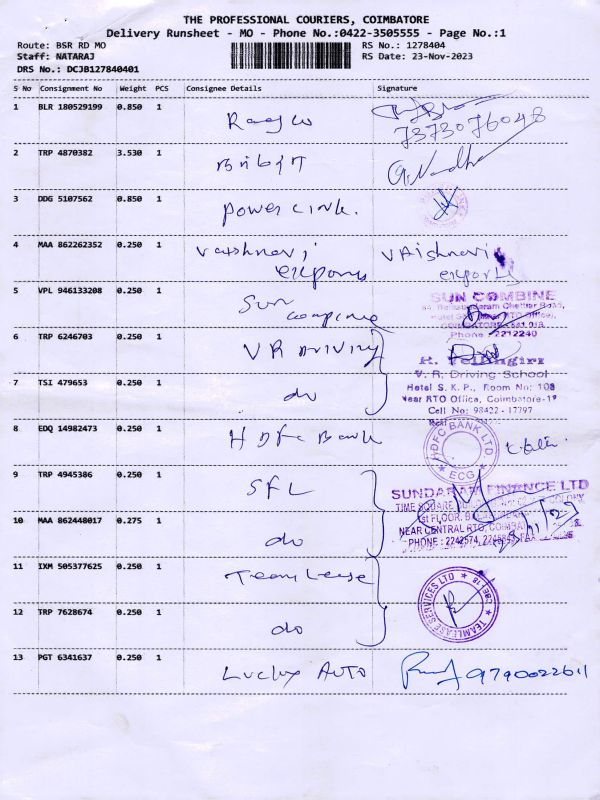 THE PROFESSIONAL COURIERS, COIMBATORE
Delivery Runsheet - MO - Phone No.:0422-3505555 - Page No.:1
Route: BSR RD MO
RS No.: 1278404
Staff: NATARAJ
RS Date: 23-Nov-2023
DRS No.: DCJB127840401
S No Consignment No Weight PCS Consignee Details Signature
1 BLR 180529199 0.850 1
7373076048
2 TRP 4870382 3.530 1
3 DDG 5107562 0.850 1 Power Link.
4 MAA 862262352 0.250 1 Vaishnavi Vaishnavi
exports exports
5 VPL 946133208 0.250 1 Sun SUN COMBINE
combine COIMBATORE-641 018.
Phone : 2212240
6 TRP 6246703 0.250 1 VR Driving
V. R. Driving School
7 TSI 479653 0.250 1 do Hotel S. K. P., Room No: 108
Near RTO Office, Coimbatore-18
Cell No: 98422 - 17397
8 EDQ 14982473 0.250 1 HDFC Bank HDFC BANK LTD
ECG
9 TRP 4945386 0.250 1 SFL
SUNDARAM FINANCE LTD
10 MAA 862448017 0.275 1 do
NEAR CENTRAL RTO,
PHONE : 2242574,
11 IXM 505377625 0.250 1 Teamlease TEAMLEASE SERVICES LTD
12 TRP 7628674 0.250 1 do
13 PGT 6341637 0.250 1 Lucky Auto 9790022611